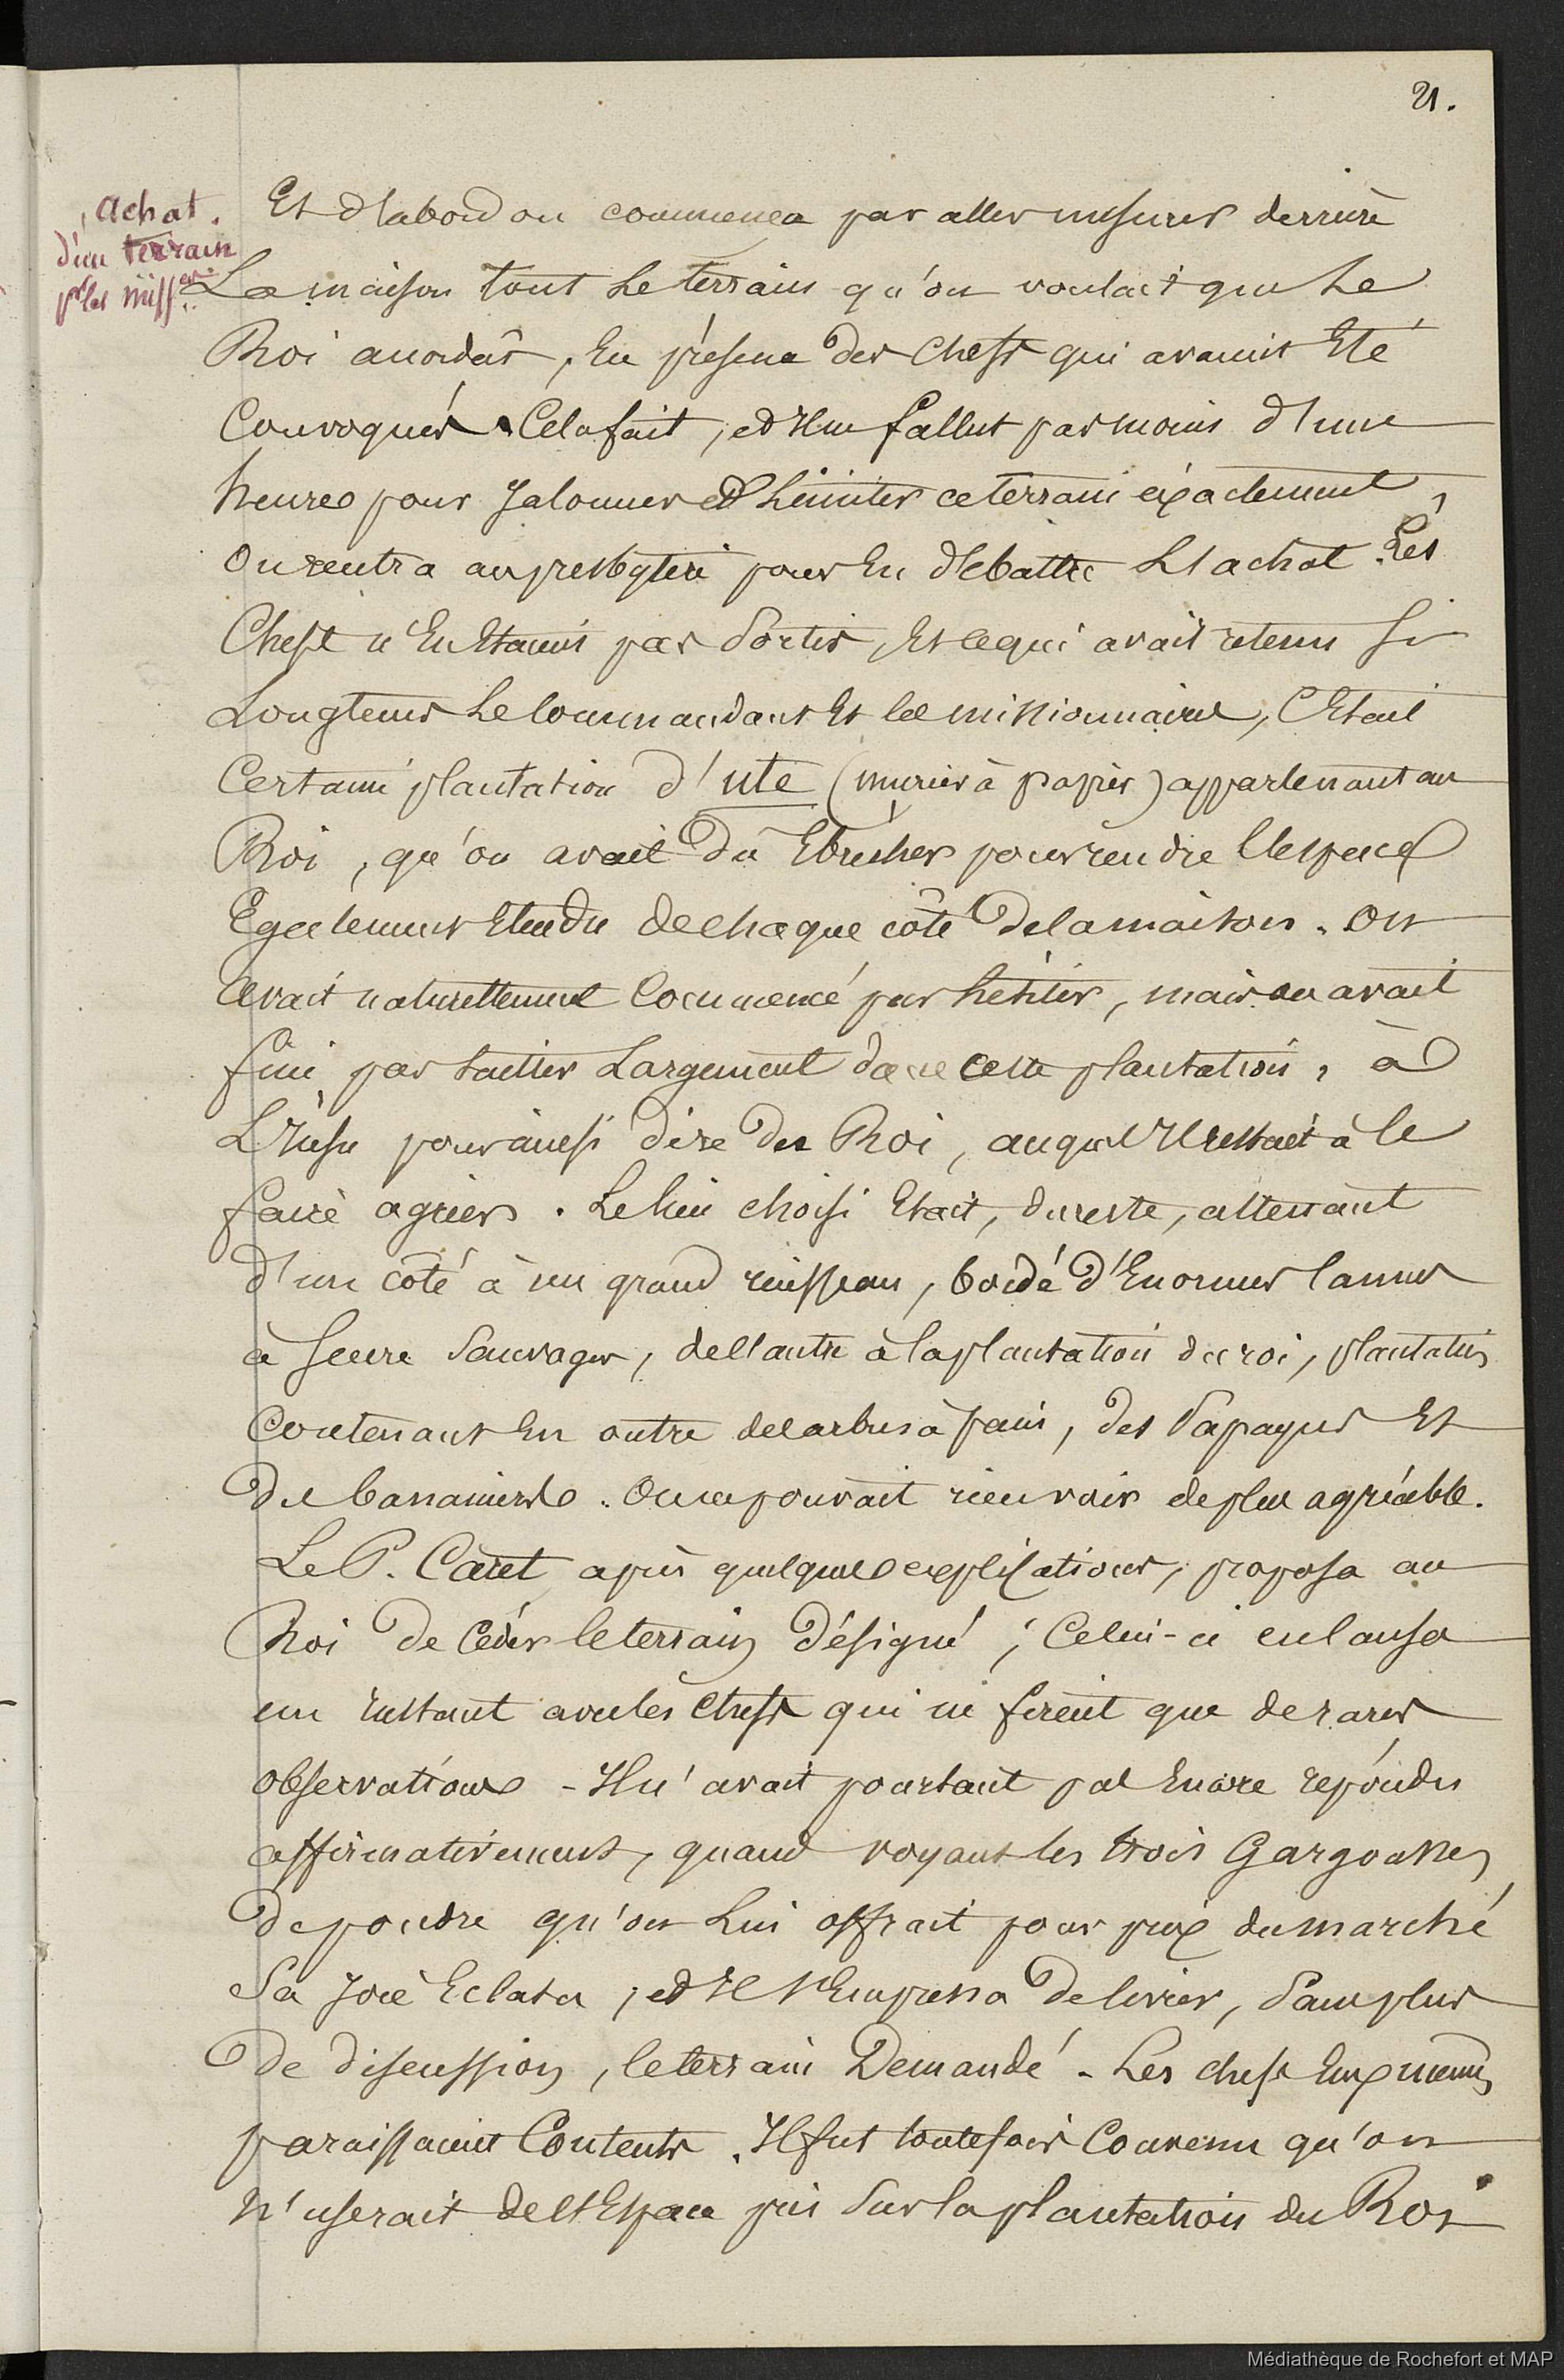 21.
Achat
d'un terrain
pr les missres
Et d'abord on commença par aller mesurer derrière
La maison tout Le terrain qu'on voulait que Le
Roi accordât, En présence des Chefs qui avaient Eté
Convoqués. Cela fait, et Il ne fallut pas moins d'une
heure pour Jalonner et Limiter ce terrain exactement,
On rentra au presbytère pour En débattre L'achat. Les
Chefs n'En Etaient pas Sortis, Et ce qui avait retenu si
Longtems Le Commandant Et les missionnaires, C'Etait
Certaine plantation d'ute (murier à papier) appartenant au
Roi, qu'on avait Dû Ebrécher pour rendre l'espace
Egalement Etendu de chaque côté de la maison. On
avait naturellement Commencé par hésiter, mais on avait
fini par tailler Largement dans cette plantation, à
L'Insu pour ainsi dire du Roi, auquel Il restait à le
faire agréer. Le lieu choisi Etait, du reste, attenant
d'un côté à un grand ruisseau, bordé d'Enormes Cannes
à Sucre Sauvages, de l'autre à la plantation du roi, plantation
Contenant En outre des arbres à pain, des Papayers Et
Des bananiers. On ne pouvait rien voir de plus agréable.
Le P. Caret après quelques explications, proposa au
Roi de Céder le terrain désigné; Celui-ci en causa
un Instant avec les Chefs qui ne firent que de rares
observations - Il n'avait pourtant pas Encore répondu
affirmativement, quand voyant les trois Gargousses
de poudre qu'on Lui offrait pour prix du marché
Sa Joie Eclata, et Il s'Empressa De livrer, Sans plus
de discussion, le terrain Demandé - Les chefs Eux mêmes
paraissaient Contents. Il fut toutefois Convenu qu'on
n'userait de l'Espace pris Sur la plantation du Roi
Médiathèque de Rochefort et MAP